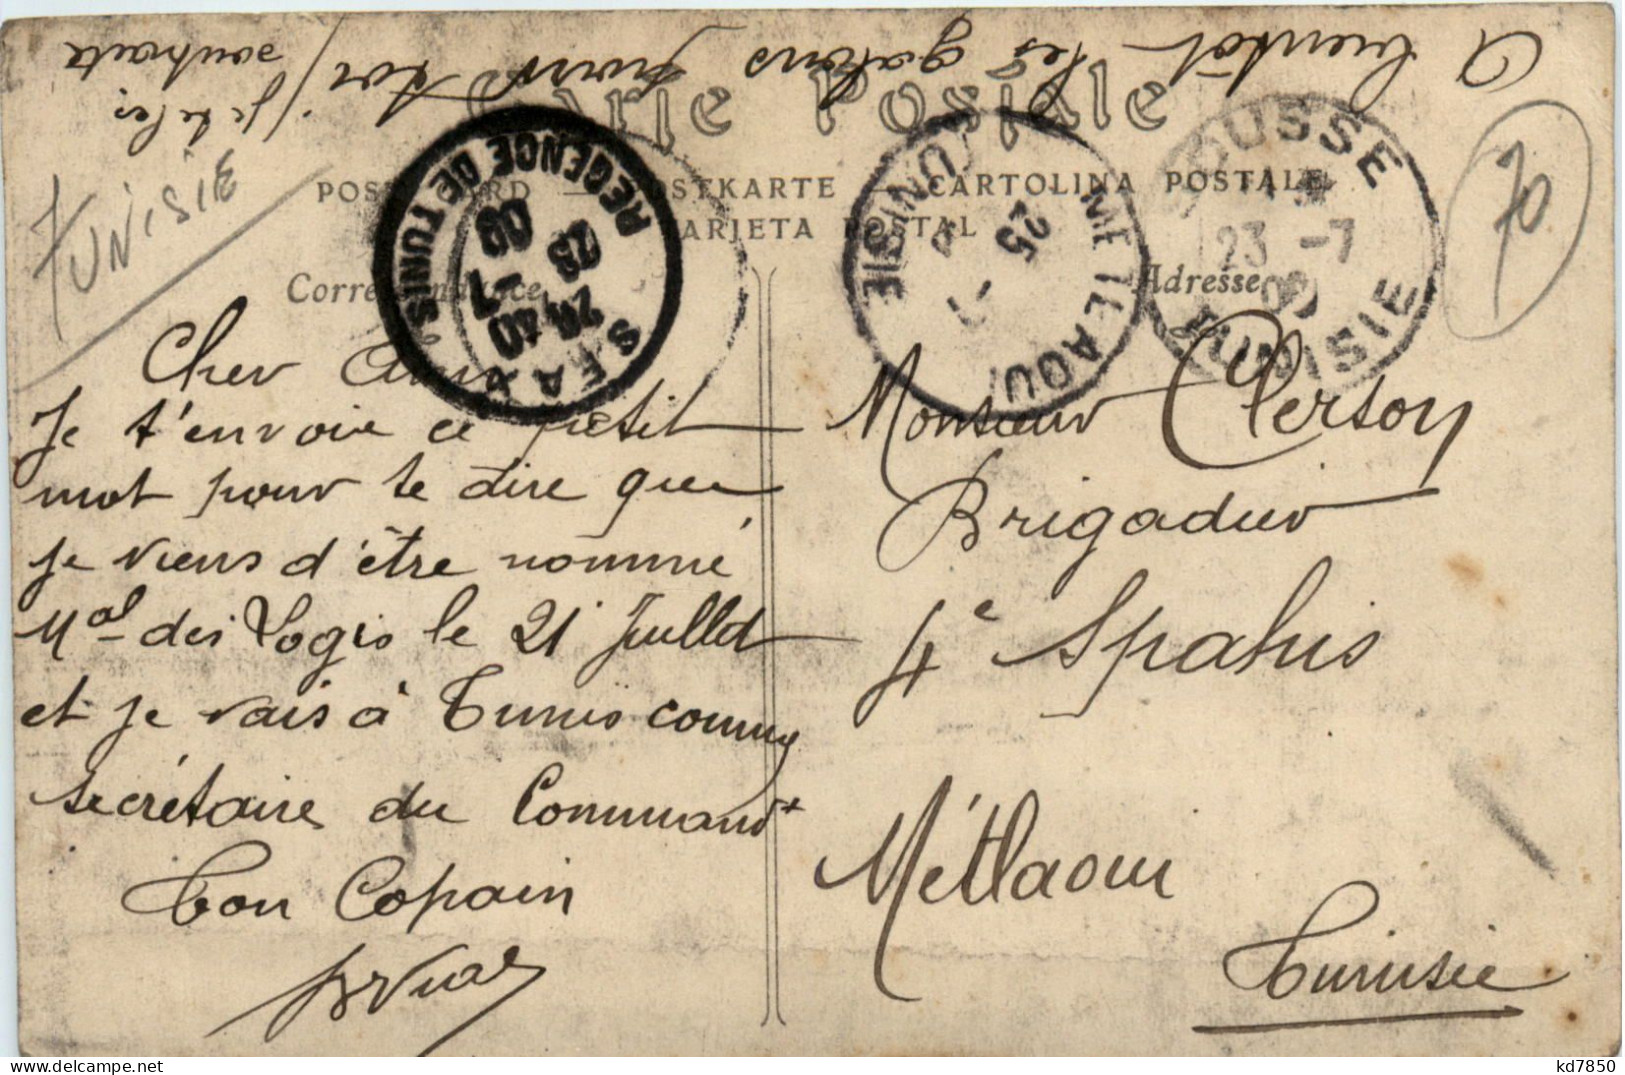 A bientôt les galons pour toi
je te les
souhaite
Carte Postale
POST CARD — POSTKARTE — CARTOLINA POSTALE
TARJETA POSTAL
Correspondance
Adresse
TUNISIE
70
REGENCE DE TUNIS
SFAX
20 40
23 -7
09
METLAOUI
TUNISIE
25 -7
SOUSSE
TUNISIE
23 -7
09
Cher Ami
Je t'envoie ce petit
mot pour te dire que
je viens d'être nommé
Mal des Logis le 21 Juillet
et je vais à Tunis comme
secrétaire du Commandt
Ton Copain
Monsieur Clerson
Brigadier
4e Spahis
Métlaoui
Tunisie
kd7850